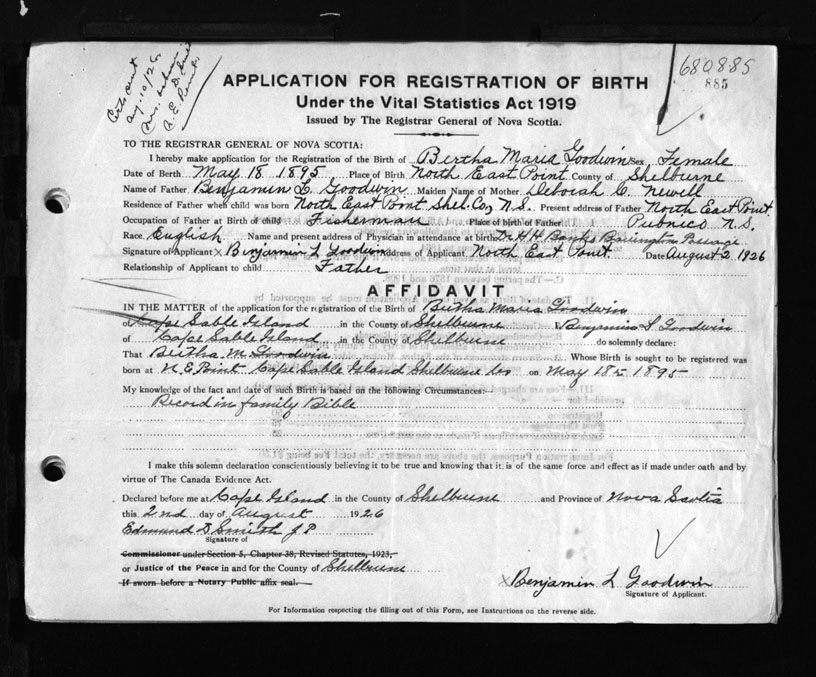 680885
885
Certs out
Aug. 10/26
APPLICATION FOR REGISTRATION OF BIRTH
Under the Vital Statistics Act 1919
Issued by The Registrar General of Nova Scotia.
TO THE REGISTRAR GENERAL OF NOVA SCOTIA:
I hereby make application for the Registration of the Birth of Bertha Maria Goodwin Sex Female
Date of Birth May 18 1895 Place of Birth North East Point County of Shelburne
Name of Father Benjamin L. Goodwin Maiden Name of Mother Deborah C. Newell
Residence of Father when child was born North East Point Shel. Co, N.S. Present address of Father North East Point
Occupation of Father at Birth of child Fisherman Place of birth of Father Pubnico N.S.
Race English Name and present address of Physician in attendance at birth Dr H H Banks Barrington Passage
Signature of Applicant x Benjamin L Goodwin Address of Applicant North East Point. Date August 2 1926
Relationship of Applicant to child Father
AFFIDAVIT
IN THE MATTER of the application for the registration of the Birth of Bertha Maria Goodwin
of Cape Sable Island in the County of Shelburne I, Benjamin L Goodwin
of Cape Sable Island in the County of Shelburne do solemnly declare:
That Bertha M. Goodwin Whose Birth is sought to be registered was
born at N. E. Point Cape Sable Island Shelburne Co on May 18 1895
My knowledge of the fact and date of such Birth is based on the following Circumstances:-
Record in family Bible
I make this solemn declaration conscientiously believing it to be true and knowing that it is of the same force and effect as if made under oath and by
virtue of The Canada Evidence Act.
Declared before me at Cape Island in the County of Shelburne and Province of Nova Scotia
this 2nd day of August 1926
Edmund D Smith J P
Signature of
Commissioner under Section 5, Chapter 38, Revised Statutes, 1923,
or Justice of the Peace in and for the County of Shelburne
If sworn before a Notary Public affix seal.
x Benjamin L Goodwin
Signature of Applicant.
For Information respecting the filling out of this Form, see Instructions on the reverse side.